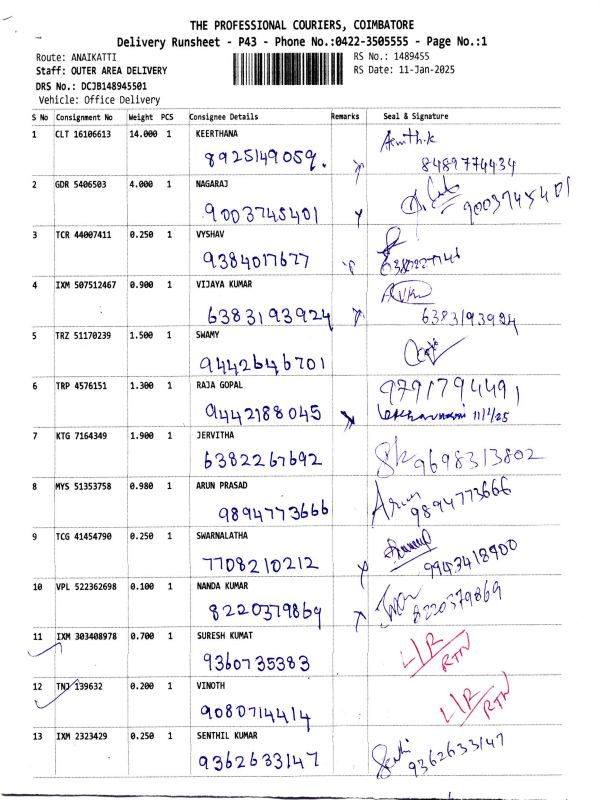 THE PROFESSIONAL COURIERS, COIMBATORE
Delivery Runsheet - P43 - Phone No.:0422-3505555 - Page No.:1
Route: ANAIKATTI
RS No.: 1489455
Staff: OUTER AREA DELIVERY
RS Date: 11-Jan-2025
DRS No.: DCJB148945501
Vehicle: Office Delivery
S No Consignment No Weight PCS Consignee Details Remarks Seal & Signature
1 CLT 16106613 14.000 1 KEERTHANA
8925149059.
8489774434
2 GDR 5406503 4.000 1 NAGARAJ
9003745401 9003745401
3 TCR 44007411 0.250 1 VYSHAV
9384017677
4 IXM 507512467 0.900 1 VIJAYA KUMAR
6383193924 6383193924
5 TRZ 51170239 1.500 1 SWAMY
9442646701
6 TRP 4576151 1.300 1 RAJA GOPAL 9791794491
9442188045 11/1/25
7 KTG 7164349 1.900 1 JERVITHA
6382267692 9698313802
8 MYS 51353758 0.980 1 ARUN PRASAD Arun
9894773666 9894773666
9 TCG 41454790 0.250 1 SWARNALATHA
7708210212 9943418900
10 VPL 522362698 0.100 1 NANDA KUMAR
8220379869 8220379869
11 IXM 303408978 0.700 1 SURESH KUMAT
9360735383 RTN
12 TNJ 139632 0.200 1 VINOTH
9080714414 RTN
13 IXM 2323429 0.250 1 SENTHIL KUMAR
9362633147 9362633147